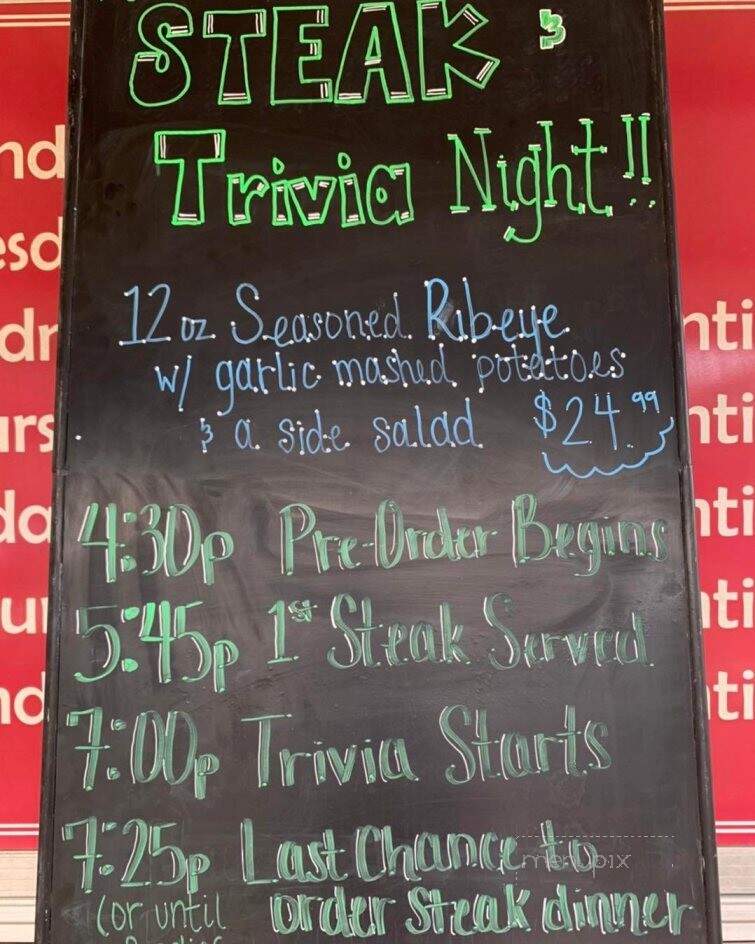 STEAK &
Trivia Night!!
12 oz Seasoned Ribeye
w/ garlic mashed potatoes
& a side salad $24.99
4:30p Pre-Order Begins
5:45p 1st Steak Served
7:00p Trivia Starts
7:25p Last Chance to
(or until order steak dinner
menupix
nd
esd
dn
urs
da
ur
nd
nti
nti
nti
nti
nti